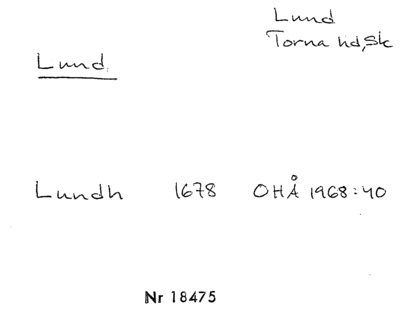 Lund
Torna hd, Sk
Lund
Lundh 1678 OHÅ 1968:40
Nr 18475